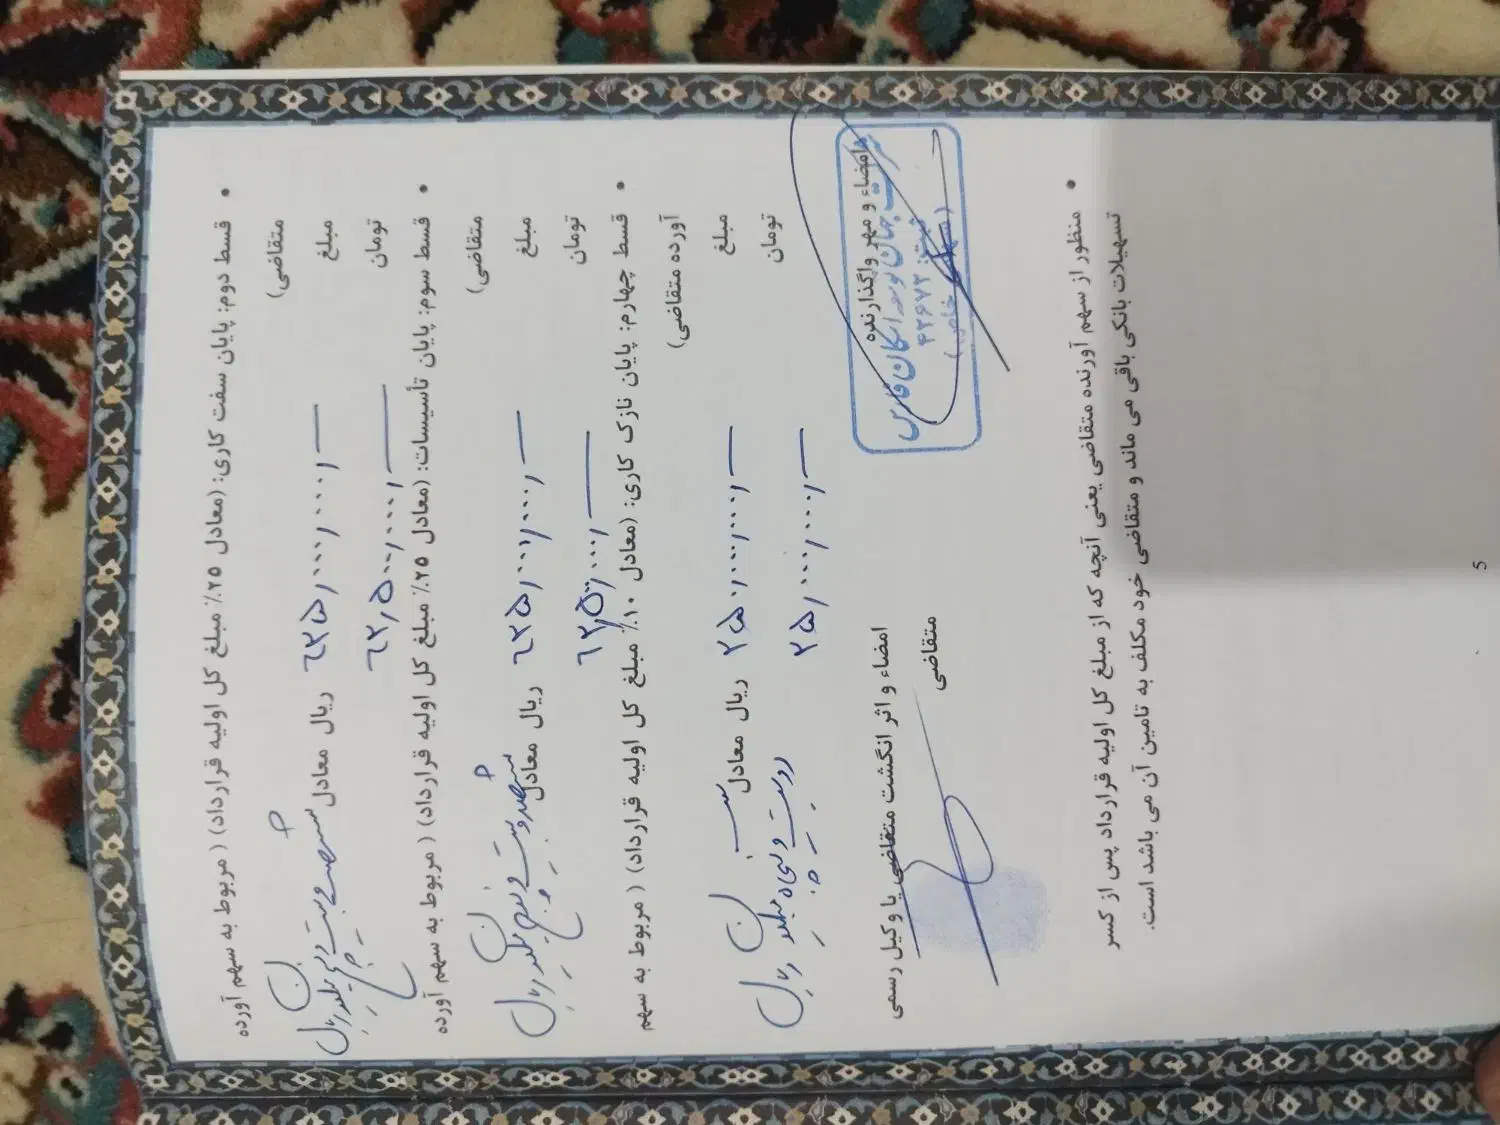 • قسط دوم: پایان سفت کاری: (معادل ۲۵٪ مبلغ کل اولیه قرارداد) ( مربوط به سهم آورده
متقاضی)
مبلغ ۶۲۵,۰۰۰,۰۰۰ ریال معادل
تومان ۶۲,۵۰۰,۰۰۰
ششصد و بیست و پنج میلیون ریال
• قسط سوم: پایان تأسیسات: (معادل ۲۵٪ مبلغ کل اولیه قرارداد) ( مربوط به سهم آورده
متقاضی)
مبلغ ۶۲۵,۰۰۰,۰۰۰ ریال معادل
ششصد و بیست و پنج میلیون ریال
تومان ۶۲,۵۰۰,۰۰۰
• قسط چهارم: پایان نازک کاری: (معادل ۱۰٪ مبلغ کل اولیه قرارداد) ( مربوط به سهم
آورده متقاضی)
مبلغ ۲۵۰,۰۰۰,۰۰۰ ریال معادل
تومان ۲۵,۰۰۰,۰۰۰
دویست و پنجاه میلیون ریال
امضاء و مهر واگذارنده
شرکت جهان توسعه اسکان فارس
ثبت: ۴۲۶۷۳
(سهامی خاص)
امضاء و اثر انگشت متقاضی یا وکیل رسمی
متقاضی
• منظور از سهم آورنده متقاضی یعنی آنچه که از مبلغ کل اولیه قرارداد پس از کسر
تسهیلات بانکی باقی می ماند و متقاضی خود مکلف به تامین آن می باشد است.
5